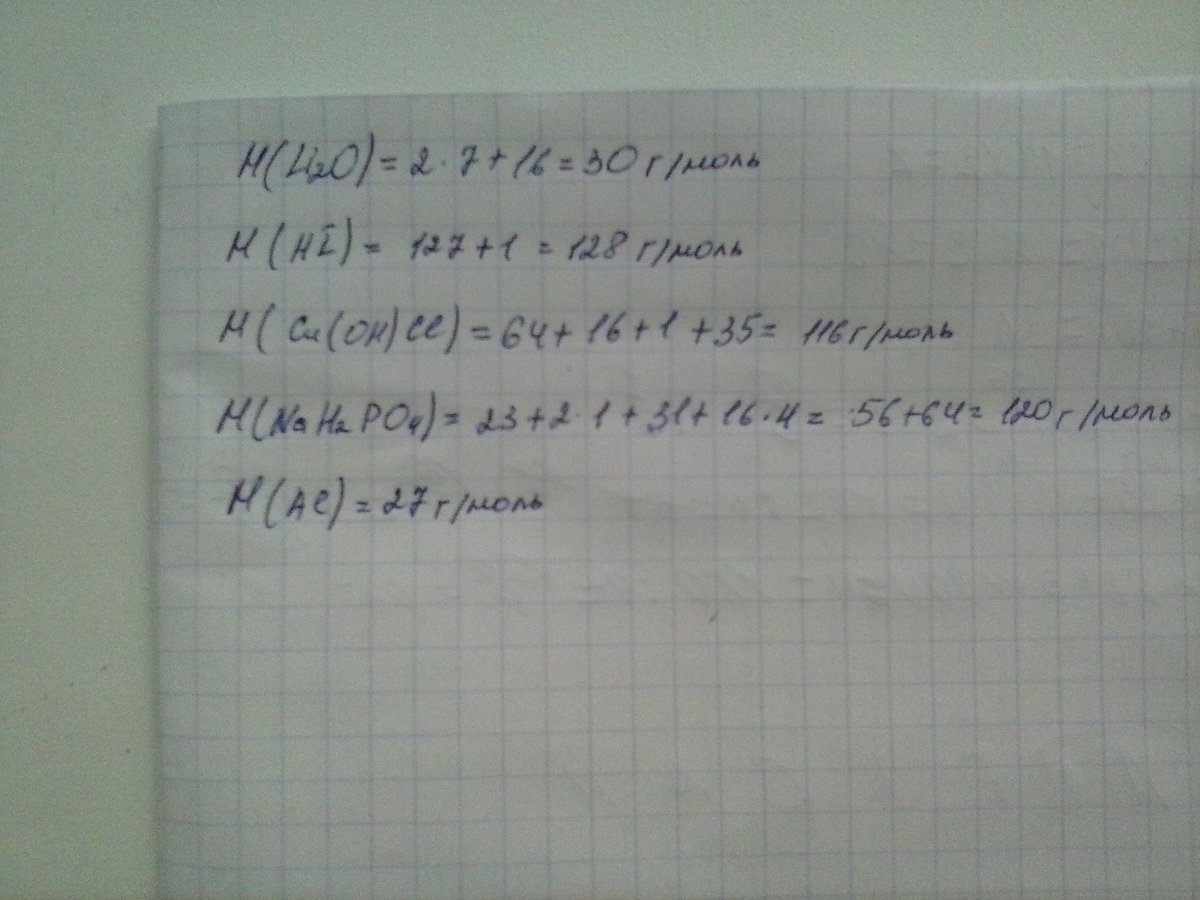 M(Li₂O) = 2·7+16 = 30 г/моль
M(HI) = 127+1 = 128 г/моль
M(Cu(OH)Cl) = 64+16+1+35 = 116 г/моль
M(NaH₂PO₄) = 23+2·1+31+16·4 = 56+64 = 120 г/моль
M(Al) = 27 г/моль